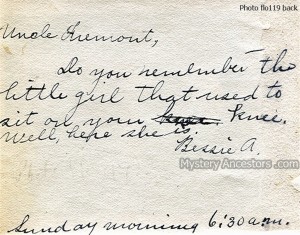 Photo flo119 back
Uncle Fremont,
Do you remember the
little girl that used to
sit on your knee.
Well, here she is.
Bessie A.
Mystery Ancestors.com
Sunday morning 6:30 a.m.